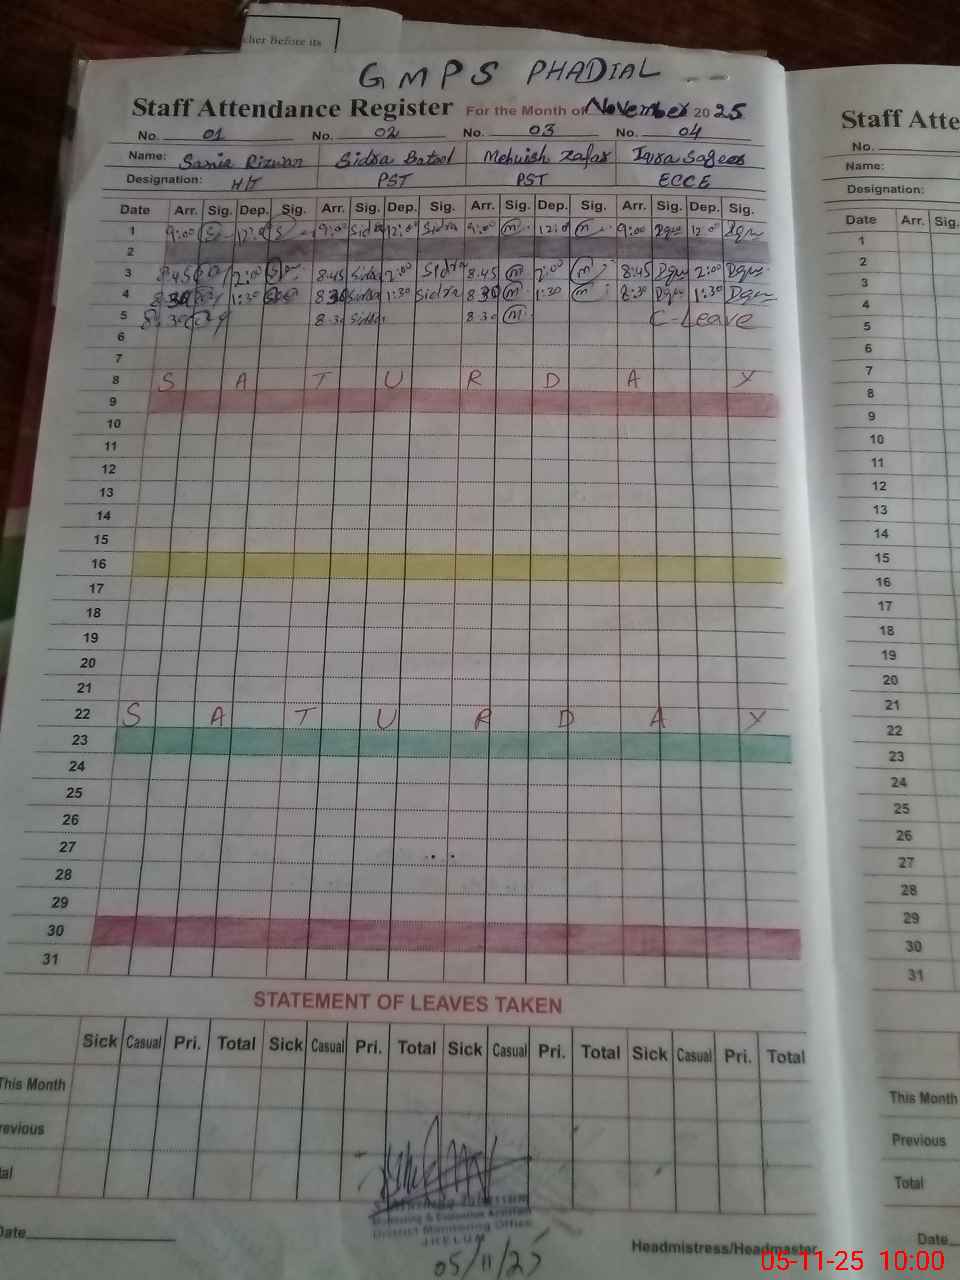 cher Before its
GMPS PHADIAL
Staff Attendance Register For the Month of November 2025
No. 01 No. 02 No. 03 No. 04
Name: Sania Rizwan Sidra Batool Mehwish Zafar Iqra Sageer
Designation: HT PST PST ECCE
Date Arr. Sig. Dep. Sig. Arr. Sig. Dep. Sig. Arr. Sig. Dep. Sig. Arr. Sig. Dep. Sig.
1 9:00 S 12:0 S 9:00 Sidra 12:00 Sidra 9:00 m 12:0 m 9:00 Iqra 12:0 Iqra
2
3 8:45 2:00 8:45 Sidra 2:00 Sidra 8:45 m 2:00 m 8:45 Iqra 2:00 Iqra
4 8:30 1:30 8:30 Sidra 1:30 Sidra 8:30 m 1:30 m 8:30 Iqra 1:30 Iqra
5 8:30 8:30 Sidra 8:30 m C-Leave
6
7
8 S A T U R D A Y
9
10
11
12
13
14
15
16
17
18
19
20
21
22 S A T U R D A Y
23
24
25
26
27
28
29
30
31
STATEMENT OF LEAVES TAKEN
Sick Casual Pri. Total Sick Casual Pri. Total Sick Casual Pri. Total Sick Casual Pri. Total
This Month
revious
tal
Monitoring & Evaluation
District Monitoring Office
JHELUM
05/11/25
Date
Headmistress/Headmaster
Staff Atte
No.
Name:
Designation:
Date Arr. Sig.
1
2
3
4
5
6
7
8
9
10
11
12
13
14
15
16
17
18
19
20
21
22
23
24
25
26
27
28
29
30
31
This Month
Previous
Total
Date
05-11-25 10:00